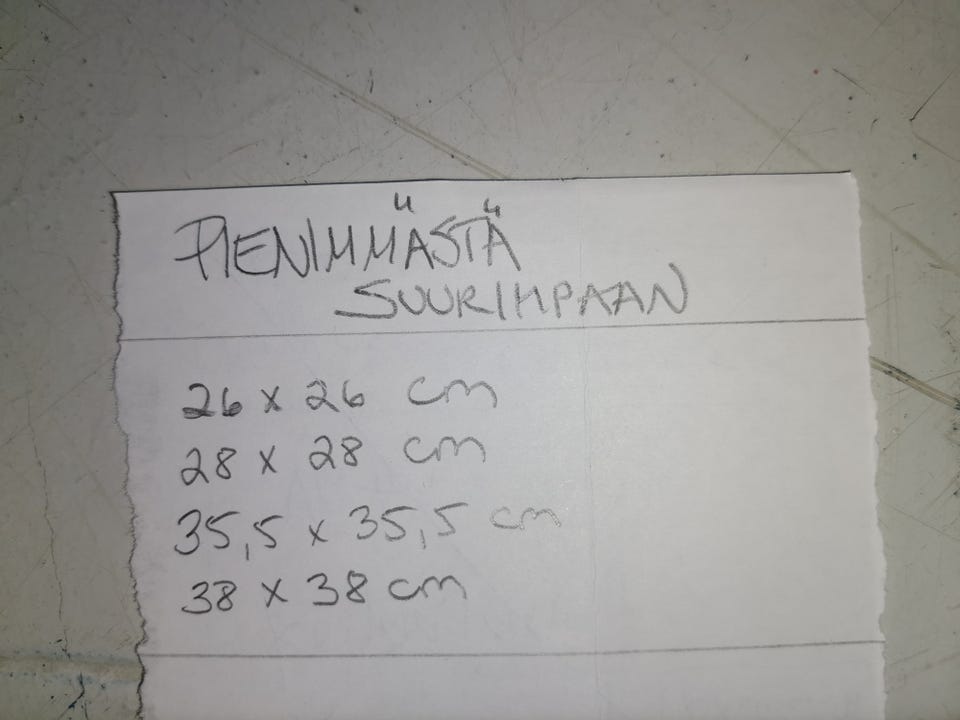 PIENIMMÄSTÄ
SUURIMPAAN
26 x 26 cm
28 x 28 cm
35,5 x 35,5 cm
38 x 38 cm